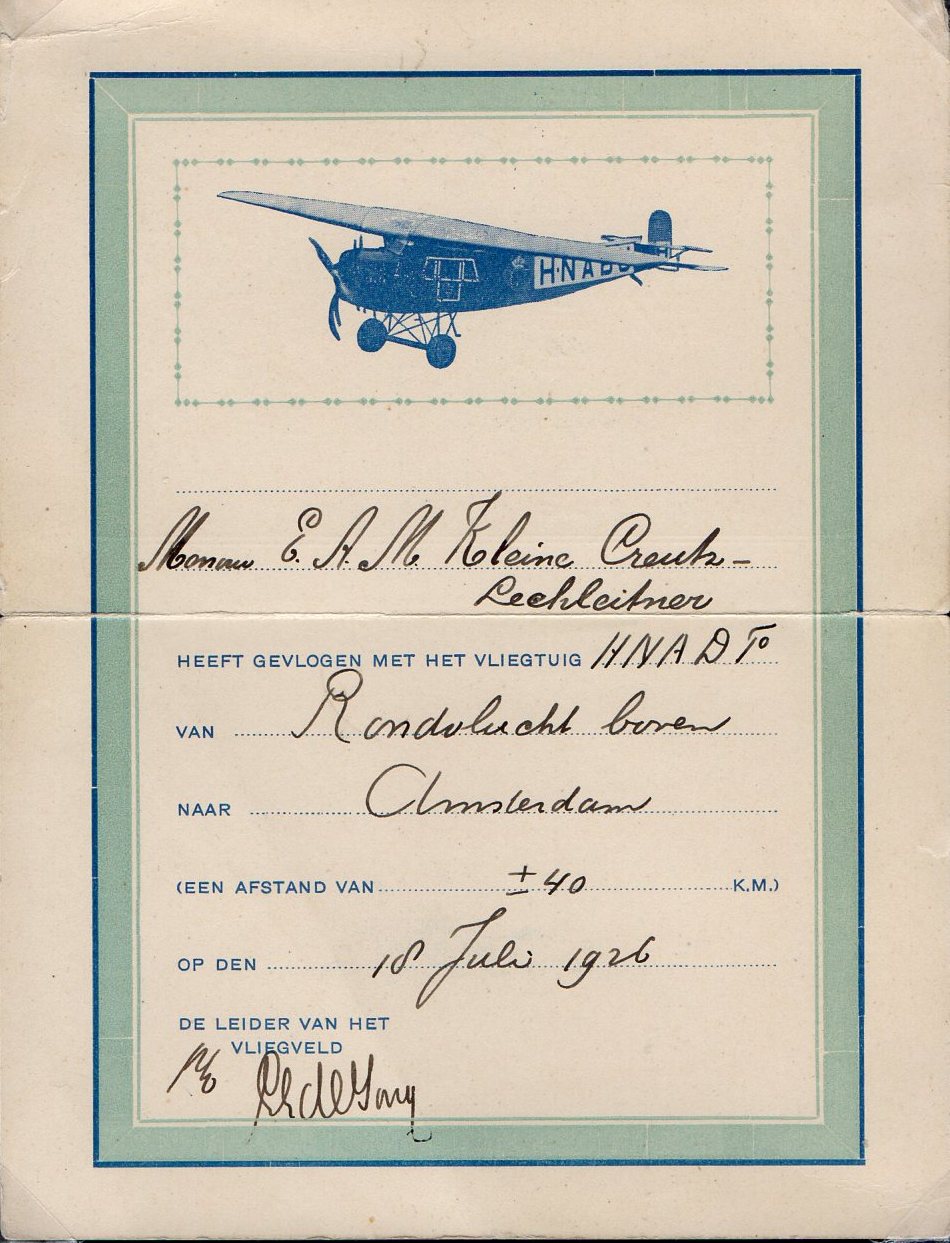 H-NABC
Mevrouw E. A. M. Kleine Creutz-
Lechleitner
HEEFT GEVLOGEN MET HET VLIEGTUIG HNADP
VAN Rondvlucht boven
NAAR Amsterdam
(EEN AFSTAND VAN ± 40 K.M.)
OP DEN 18 Juli 1926
DE LEIDER VAN HET
VLIEGVELD